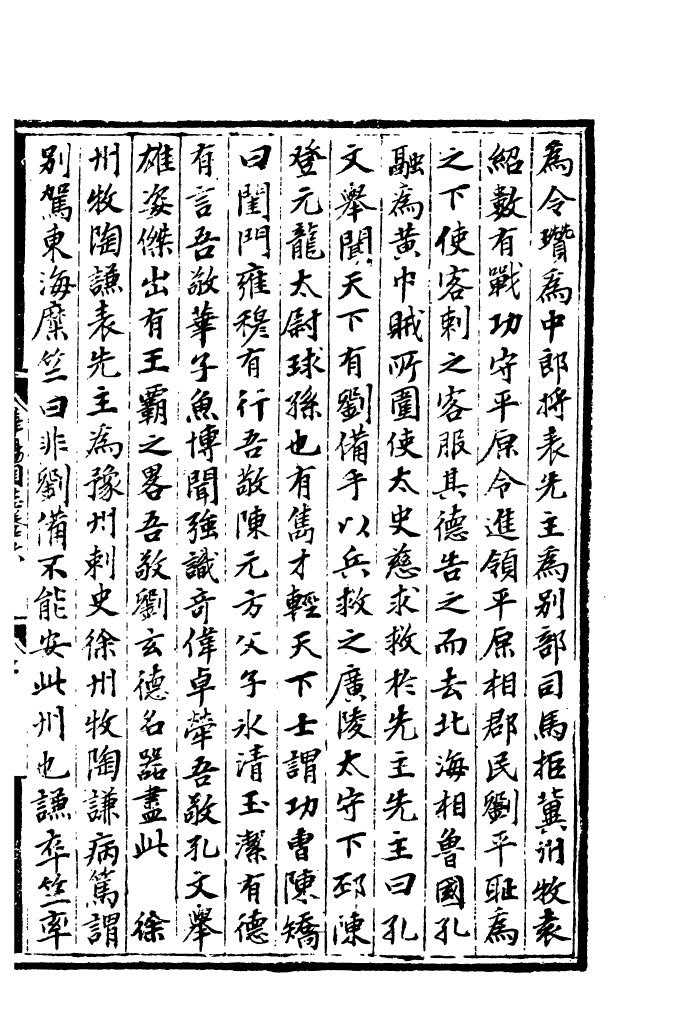 為令瓚為中郎將表先主為别部司馬拒冀州牧袁
紹數有戰功守平原令進領平原相郡民劉平耻為
之下使客刺之客服其德告之而去北海相魯國孔
融為黄巾賊所圍使太史慈求救於先主先主曰孔
文舉聞天下有劉備乎以兵救之廣陵太守下邳陳
登元龍太尉球孫也有雋才輕天下士謂功曹陳矯
曰閨門雍穆有行吾敬陳元方父子氷清玉潔有德
有言吾敬華子魚博聞強識竒偉卓犖吾敬孔文舉
雄姿傑出有王霸之畧吾敬劉玄德名器盡此　徐
州牧陶謙表先主為豫州刺史徐州牧陶謙病篤謂
别駕東海糜竺曰非劉備不能安此州也謙卒竺率
華陽國志卷六